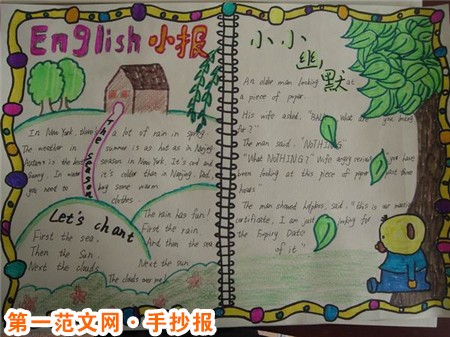 English 小报
The Seasons
In New York, there's a lot of rain in spring.
The weather in summer is as hot as in Nanjing.
Autumn is the best season in New York. It's cool and
Sunny. In winter it's colder than in Nanjing. Dad,
you need to buy some warm
clothes.
Let's chant
First the sea,
Then the Sun,
Next the clouds
The rain has fun!
First the rain
And then the sea
Next the sun
The clouds over me
小小幽默
An older man looking at
a piece of paper.
His wife asked, what are you
for?"
The man said, "NOTHING"
"What NOTHING?" Wife angry "You have
been looking at this piece of paper
hours"
The man showed said, "this is we
I am just looking for
the Expiry Date
of it."
第一范文网·手抄报